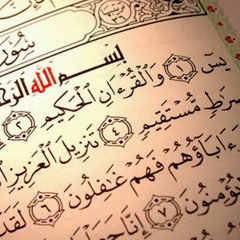 بِسْمِ ٱللَّهِ
يسٓ ١ وَٱلْقُرْءَانِ ٱلْحَكِيمِ ٢
صِرَٰطٍ مُّسْتَقِيمٍ ٤ تَنزِيلَ ٱلْعَزِيزِ
ءَابَآؤُهُمْ فَهُمْ غَٰفِلُونَ ٦ لَقَدْ
يُؤْمِنُونَ ٧ إِنَّا